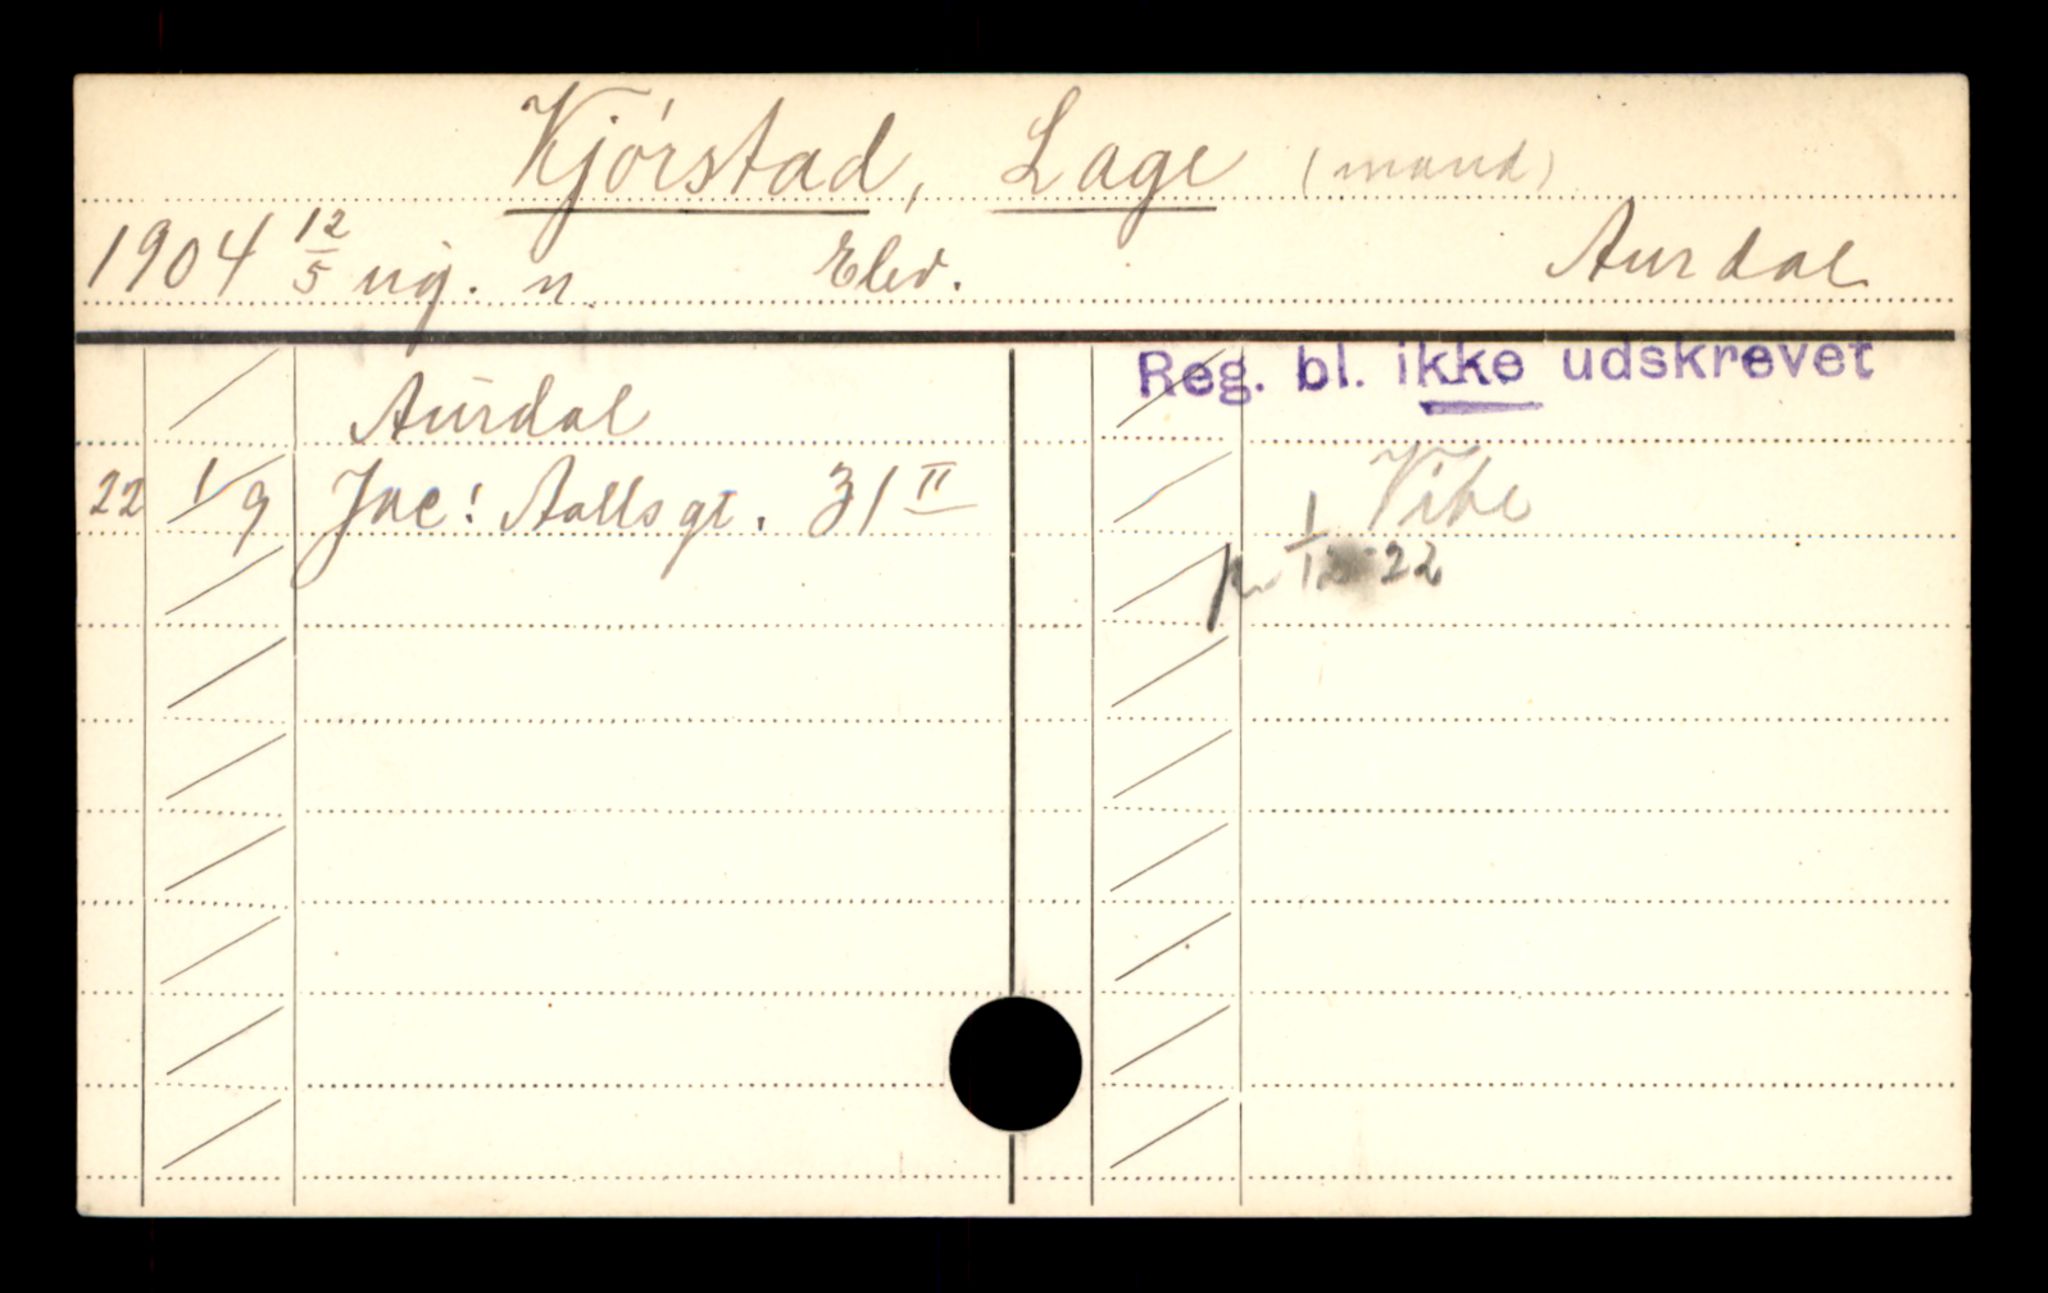 Kjórstad, Lage (mand)
1904 12/5 ug. n. Elev. Aurdal
Reg. bl. ikke udskrevet
Aurdal
22 1/9 Jac: Aallsgt. 31 II
Vibe
1/12 22